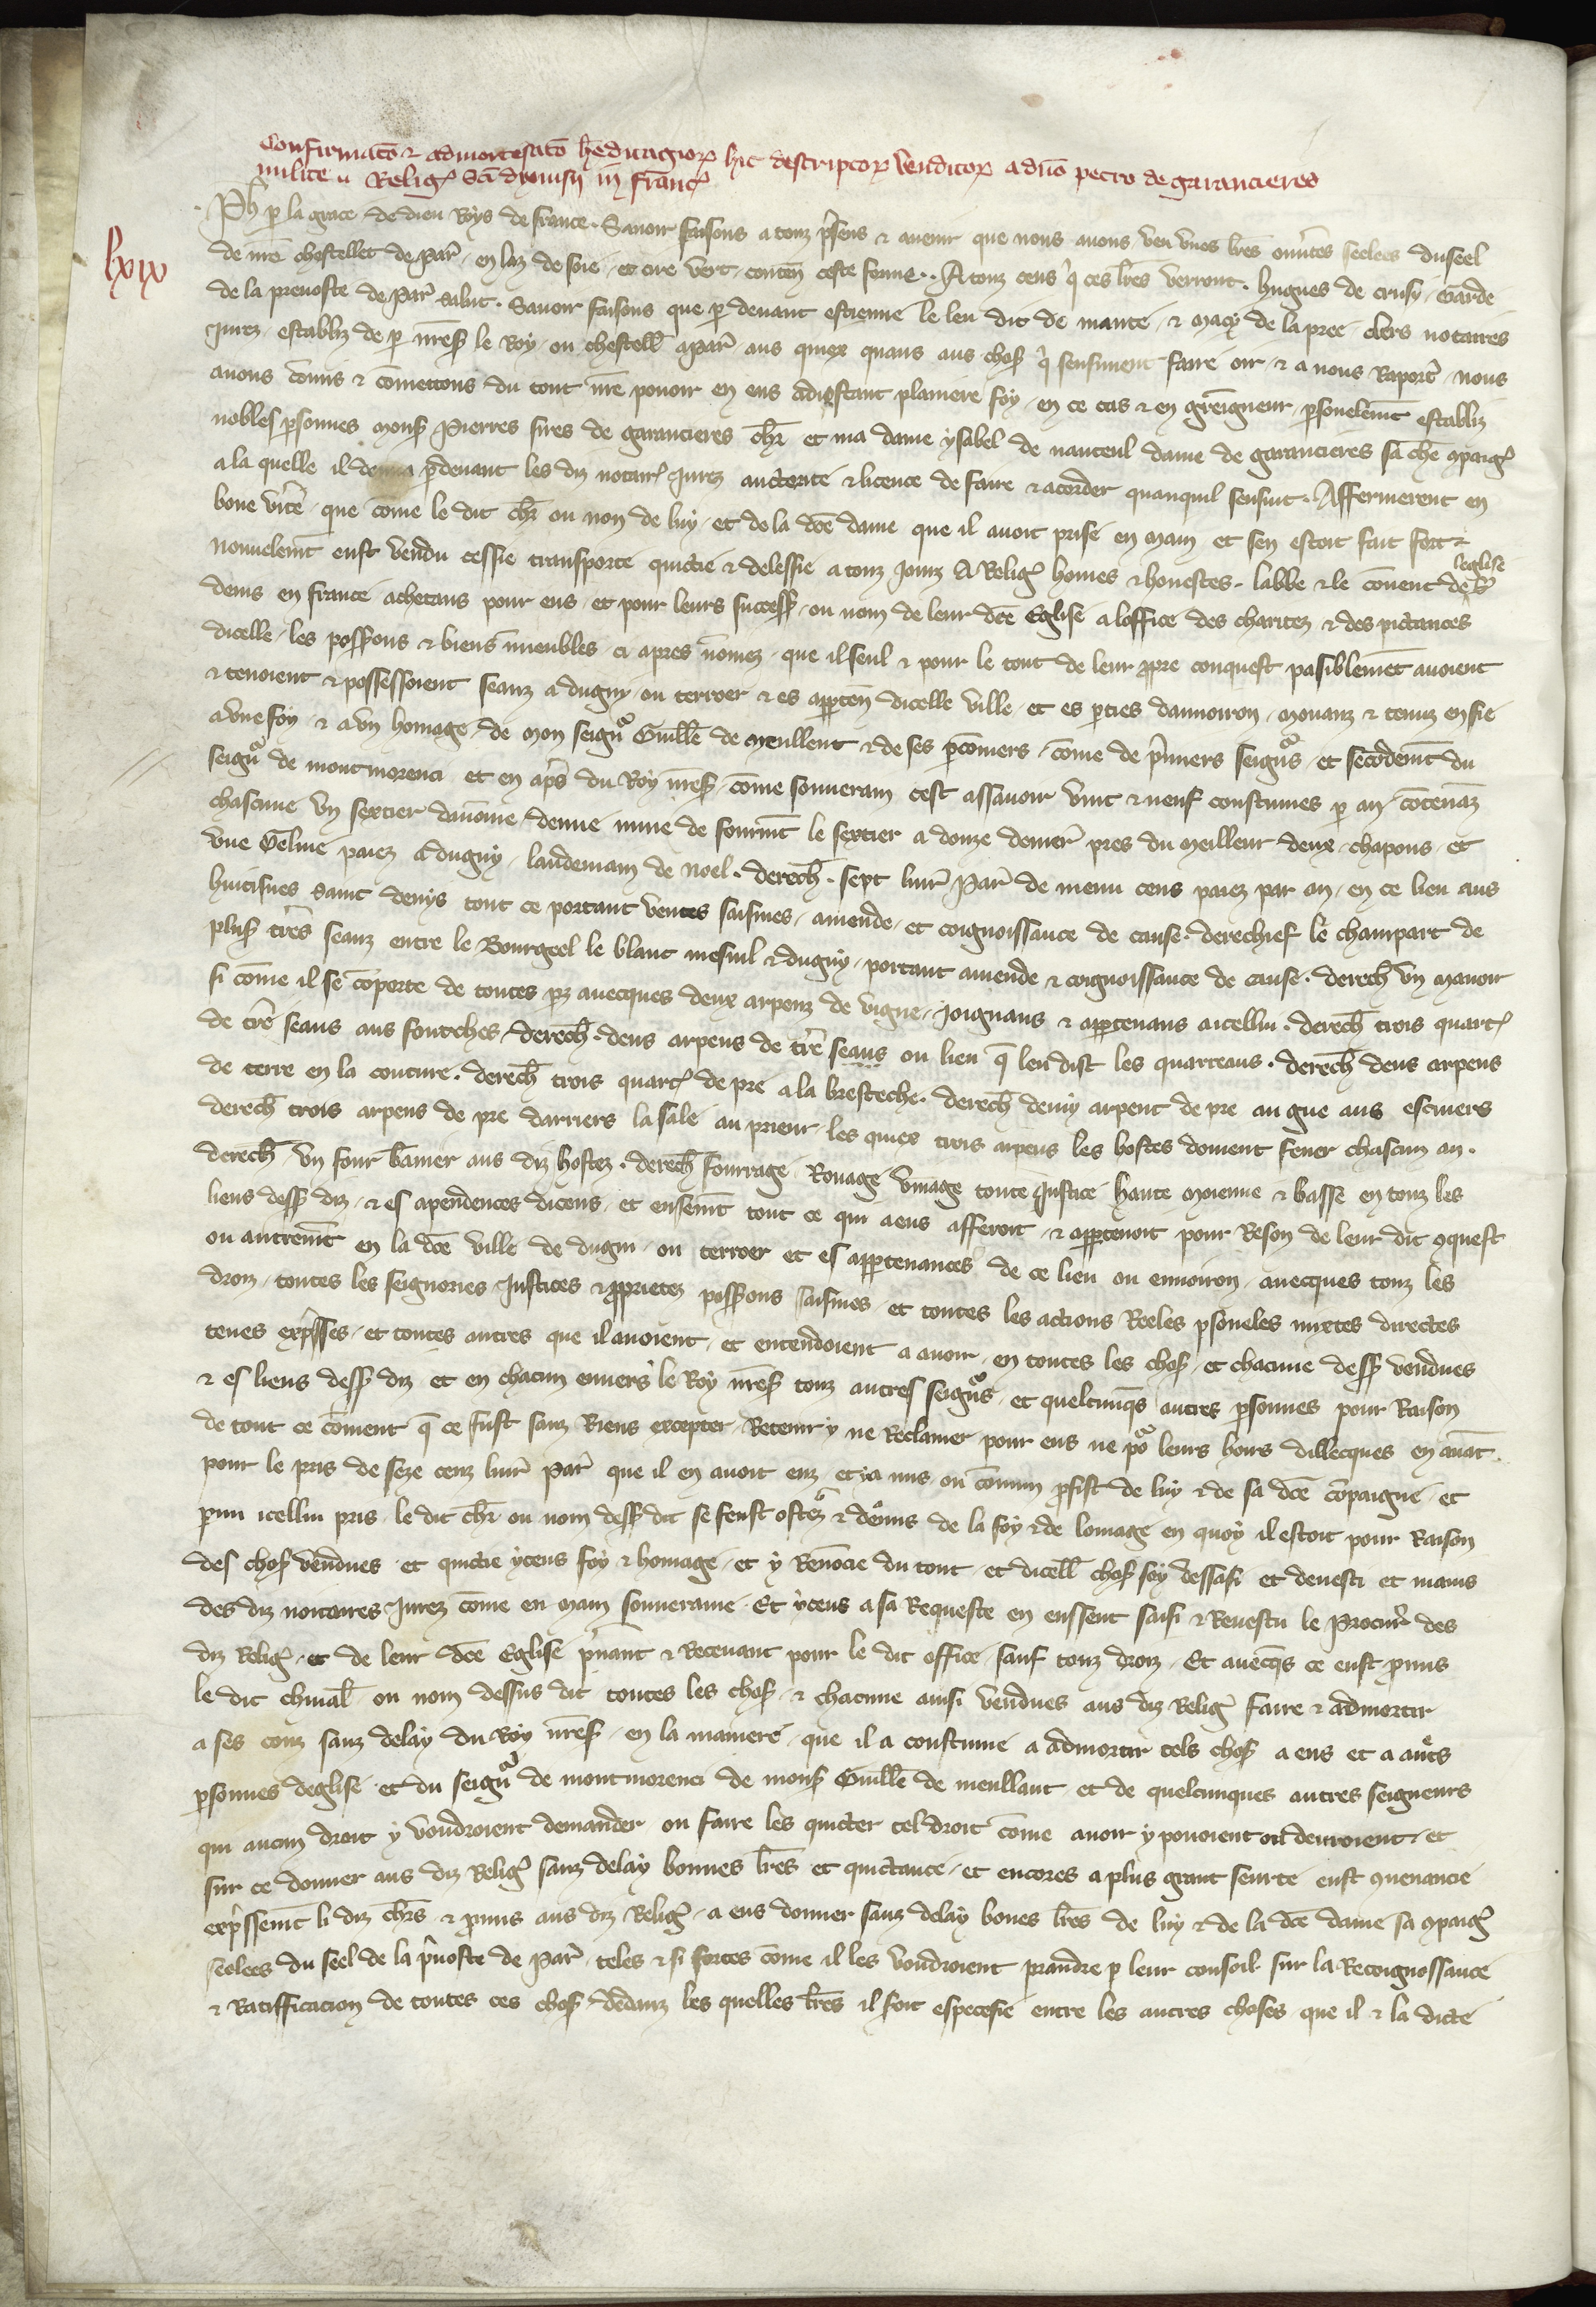 Confirmatō & admortisatō hēditagioꝝ hic descriptoꝝ venditoꝝ a dn̄o petro de garancieres
milite Religꝰ Sc̄i dyonisii in Franc̄
lxix
Ph̄ ꝑ la grace de dieu Roys de france. Sauoir faisons a touz p̄sens & auenir que nous auons veu vnes lr̄es ouūtes seelees du seel
de nr̄e chastellet de Par̄ en laz de soie et cire vert contēn ceste fourme. A touz ceus q̄ ces lr̄es verront. hugues de crusy garde
de la preuoste de Par̄ salut. Sauoir faisons que ꝑ deuant estienne le leu dit de mante & Macy de la pree clers notaires
Jurez establiz de ꝑ nr̄eß le Roy ou chastell̄ a Par̄ aus quiex quans aus choß q̄ sensuiuent faire oir & a nous Raport̄ nous
auons cōmis & cōmettons du tout nr̄e pouoir en eus adioustant planiere foy en ce cas & en greigneur ꝑsonelemēt establiz
nobles ꝑsonnes Monß Pierres sires de garancieres chr̄ et ma dame ysabel de nanteul dame de garancieres sa ch̄e ꝯpaigꝰ
a la quelle il donna ꝑdeuant les diz notairꝰ Jurez auctorite & licence de faire & acorder quanquil sensuit. Affermerent en
bone vīte que cōme le dit chr̄ ou non de luy et de la dc̄e dame que il auoit prise en main et sen estoit fait fort &
nouuelemēt eust vendu cessie transporte quictie & delessie a touz jourz A Religꝰ homes & honestes labbe & le cōuent de leglise S̄
denis en france achetans pour eus et pour leurs succeß ou nom de leur dc̄e Eglise a loffice des charitez & des pictances
dicelle les possßions & biens inmeubles ci apres nōmez que il seul & pour le tout de leur ꝓpre conquest paisiblemēt auoient
& tenoient & possessoient seanz a dugny ou terroer & es appartēn dicelle ville et es ꝑties danuiron mouanz & tenuz en fie
a vne foy & a vn homage de mon seigūr Guill̄e de meullent & de ses ꝑconiers cōme de p̄miers seigūrs et secōdemēt du
seigūr de montmorenci et en ap̄s du Roy nr̄eß cōme souuerain cest assauoir vint & neuf coustumes ꝑ an cōtenāz
chascune vn sextier dauoine demie mine de fourmēt le sextier a douze denier̄ pres du meilleur deux chapons et
vne Geline paiez a dugny landemain de noel. derech̄. sept liur̄ Par̄ de menu cens paiez par an en ce lieu aus
huitiesues saint denys tout ce portant ventes saisines amende et coignoissance de cause. derechief le champart de
plusß tr̄es seanz entre le Bourgeel le blanc mesnil & dugny portant amende & coignoissance de cause. derech̄ vn manoir
si cōme il se cōporte de toutes ꝑz auecques deux arpenz de vigne joignans & appartenans a icellui. derech̄ trois quartꝰ
de tr̄e seans aus fourches derech̄. deus arpens de tr̄e seans ou lieu q̄ len dist les quarreaus. derech̄ deus arpens
de terre en la couture. derech̄ trois quartꝰ de pre a la bresteche. derech̄ demy arpent de pre au gue aus escuiers
derech̄ trois arpens de pre darriers la sale au prieur les quiex trois arpens les hostes doiuent fener chascun an.
derech̄ vn four bānier aus diz hostez. derech̄ fourrage Rouage vinage toute Justice haute moienne & basse en touz les
lieus desß diz & es apendences diceus et ensemēt tout ce qui a eus afferoit & appartenoit pour Reson de leur dit ꝯquest
ou autremēt en la dc̄e ville de dugni ou terroer et es appartenances de ce lieu ou enuiron auecques touz les
droiz toutes les seignories Justices & ꝓprietez possßions saisines et toutes les actions Reeles ꝑsoneles mixtes directes
teues exp̄sses et toutes autres que il auoient et entendoient a auoir en toutes les choß et chacune desß vendues
& es lieus desß diz et en chacun enuers le Roy nr̄eß touz autres seigūrs et quelcunq̄s autres ꝑsonnes pour Raison
de tout ce cōment q̄ ce fust sanz Riens excepter Retenir y ne Reclamer pour eus ne poʳ leurs hoirs dillecques en auāt
pour le pris de seze cenz liur̄ Par̄ que il en auoit euz et ja mis ou cōmun ꝓfist de luy & de sa dc̄e cōpaigne et
ꝑmi icellui pris le dit chr̄ ou nom desß dit se feust ostez & demis de la foy & de lomage en quoy il estoit pour Raison
des choß vendues et quictie yceus foy & homage et y Renōcie du tout et dicell̄ choß soy dessaisi et deuesti et mains
des diz notaires Jurez cōme en main souueraine. Et yceus a sa Requeste en eussent saisi & Reuestu le Procur̄ des
diz Religꝰ et de leur dc̄e Eglise p̄nant & Receuant pour le dit office sauf touz droiz. Et auecq̄s ce eust ꝓmis
le dit cheual̄ ou nom dessus dit toutes les choß & chacune ainsi vendues aus diz Religꝰ faire & admortir
a ses couz sanz delay du Roy nr̄eß en la maniere que il a coustume a admortir tels choß a eus et a aut̄s
ꝑsonnes deglise et du seigūr de montmorenci de monß Guill̄e de meullant et de quelcunques autres seigneurs
qui aucun droit y voudroient demander ou faire les quicter tel droit cōme auoir y pouoient ou deuroient et
sur ce donner aus diz Religꝰ sanz delay bonnes lr̄es et quictance et encores a plus grant seurte eust ꝯuenancie
exp̄ssemēt li diz chr̄s & ꝓmis aus diz Religꝰ a eus donner sanz delay bones lr̄es de luy & de la dc̄e dame sa ꝯpaigꝰ
seelees du seel de la p̄uoste de Par̄ teles & si fortes cōme il les voudroient prandre ꝑ leur consoil sur la Recoignossance
& Ratifficacion de toutes ces choß dedanz les quelles lr̄es il soit especefie entre les autres choses que il & la dicte